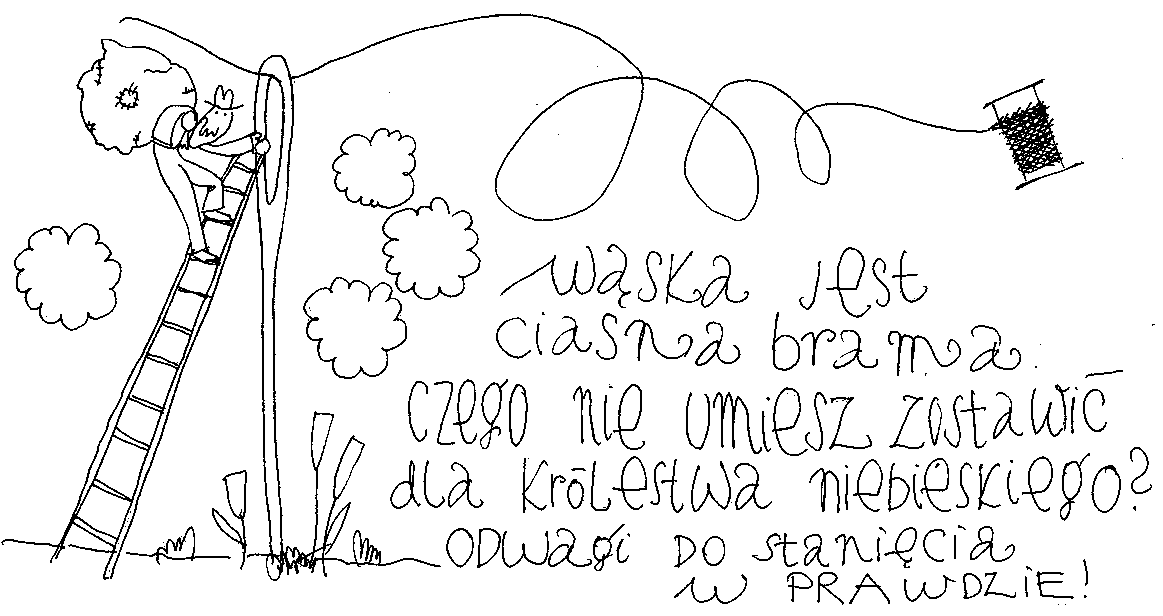 wąska jest
ciasna brama.
czego nie umiesz zostawić
dla królestwa niebieskiego?
ODWAGi DO stanięcia
w PRAWDZIE!